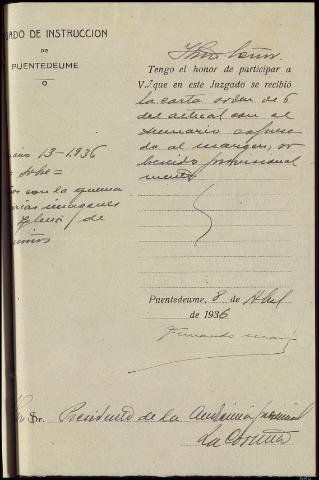 ADO DE INSTRUCCION
DE
PUENTEDEUME
Iltmo Señor
Tengo el honor de participar a
V.I que en este Juzgado se recibió
la carta orden de 6
del actual con el
sumario expresa
do al margen,
13-1936
con la quema
imagenes
de
Puentedeume, 8 de Abril
de 1936
Fernando
Sr. Presidente de la Audiencia provincial
La Coruña